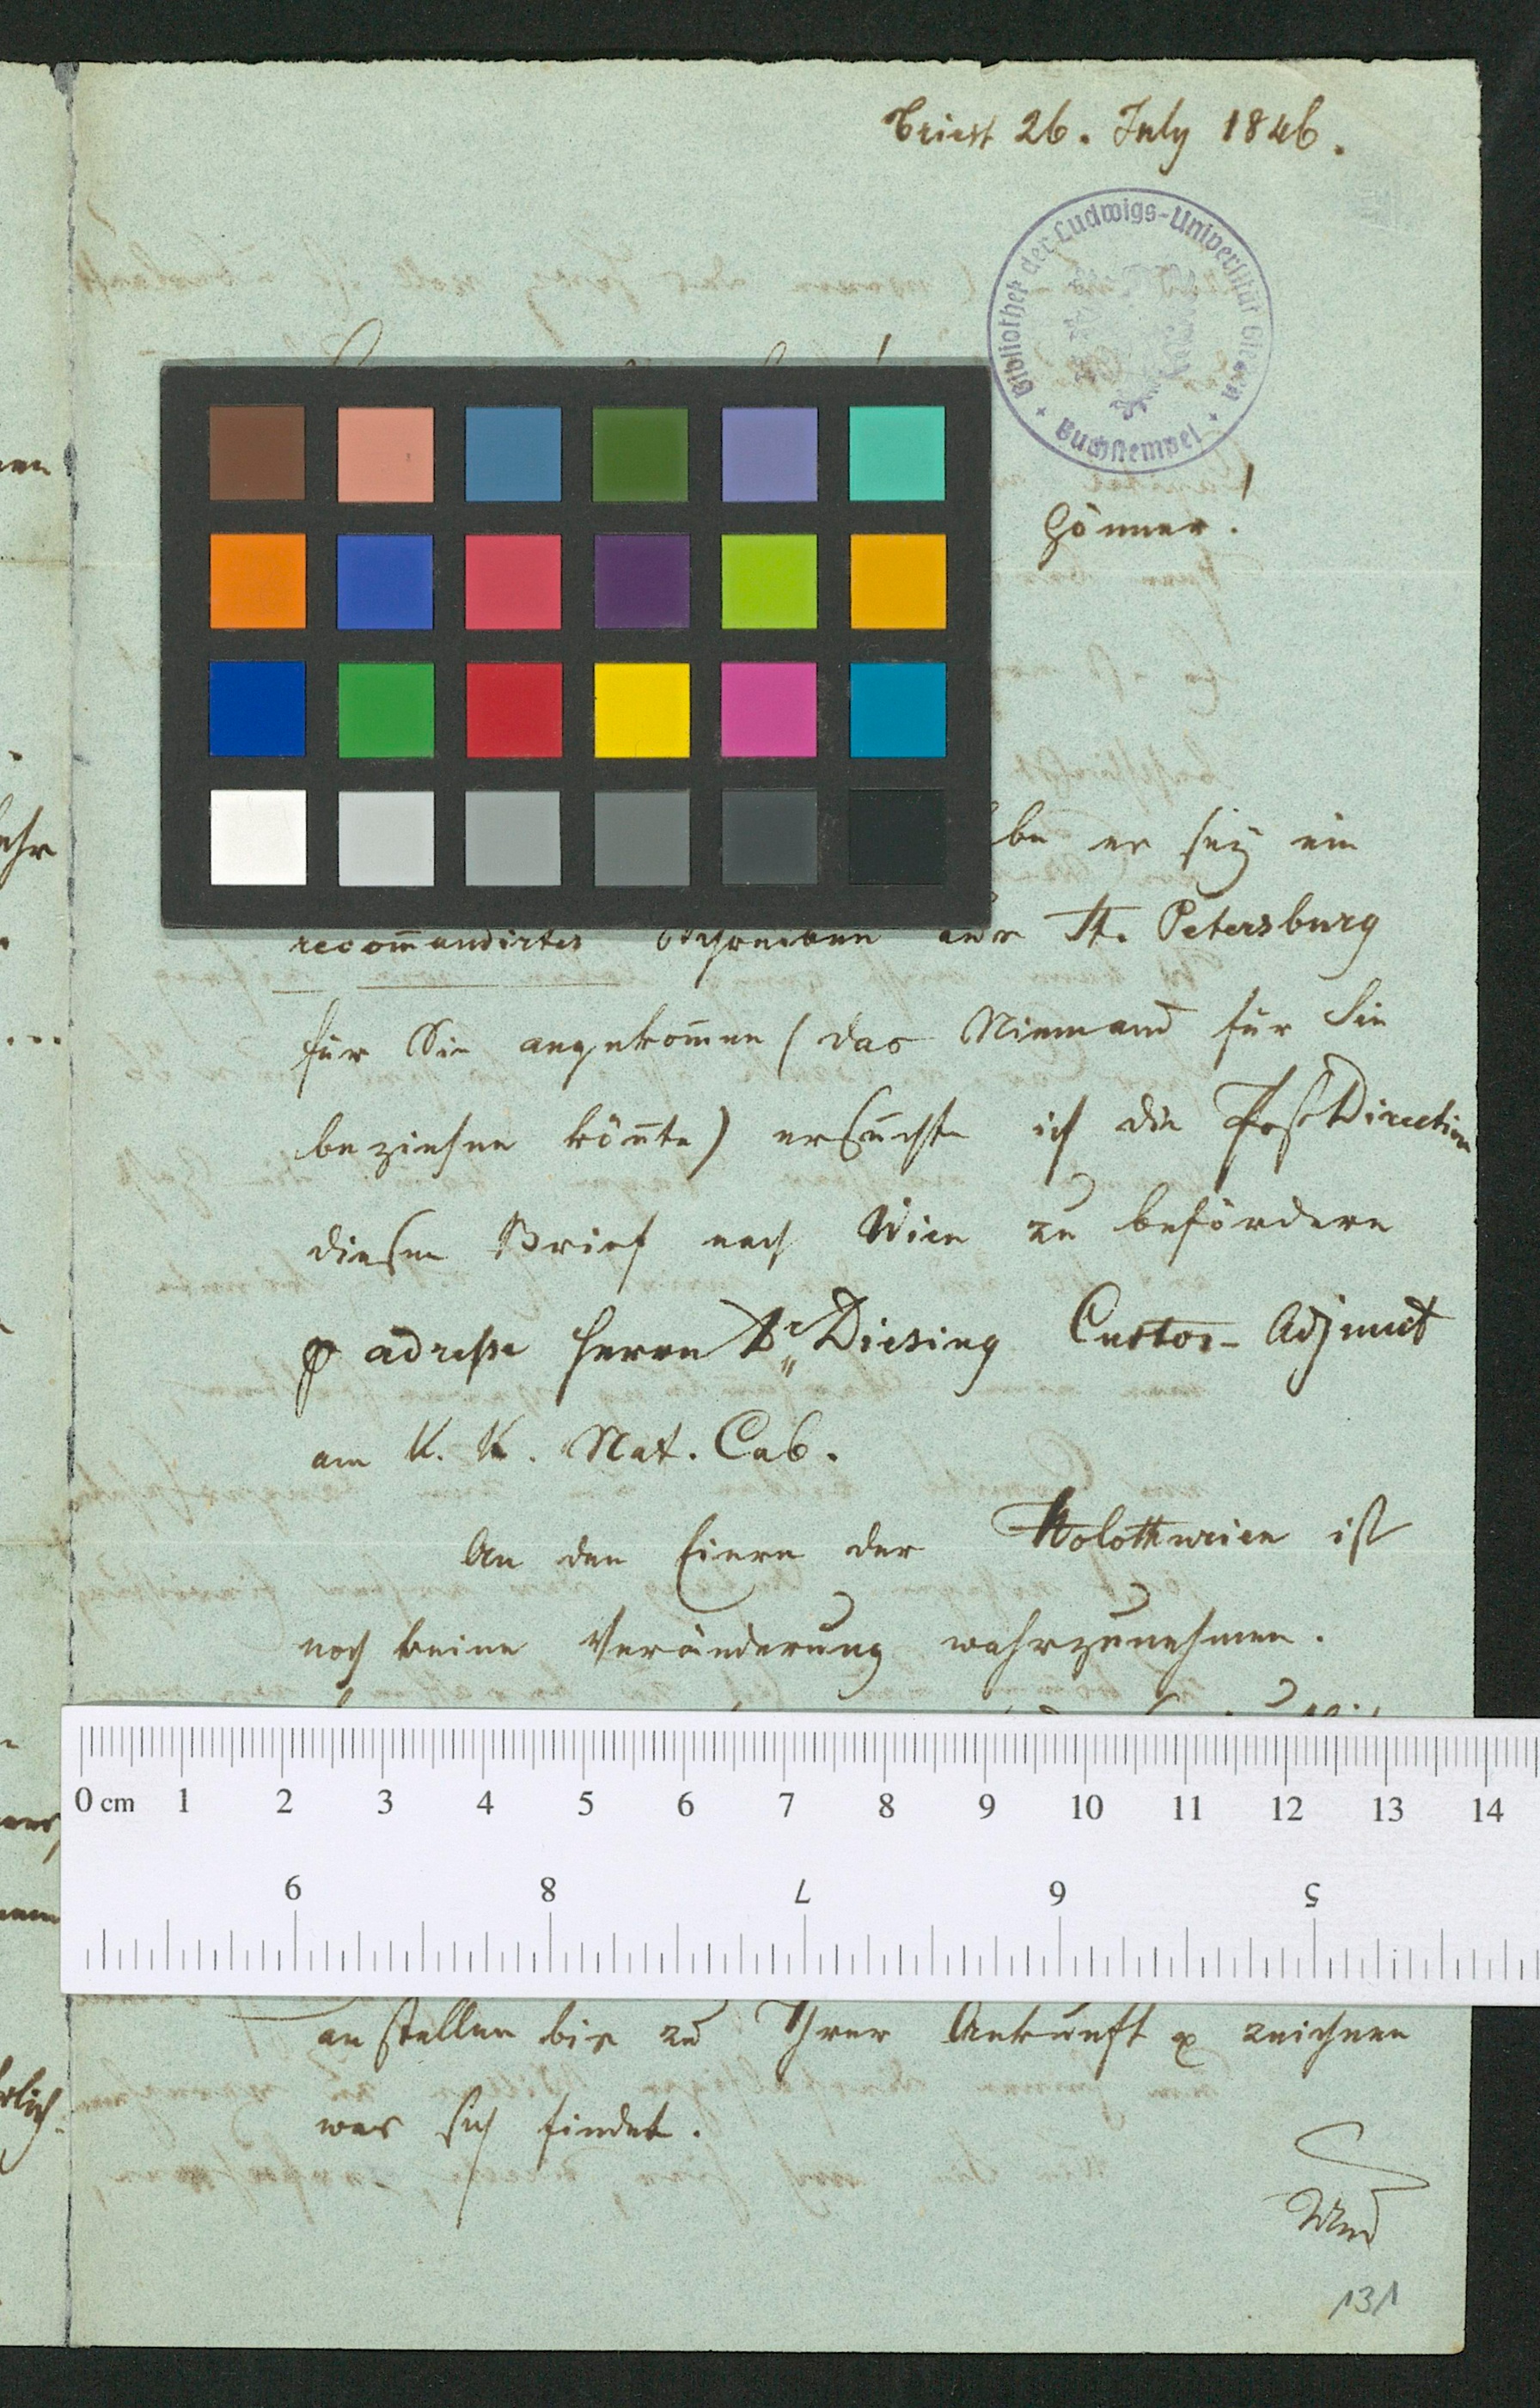 Triest 26. July 1846.
Bibliothek der Ludwigs-Universität Giessen
Buchstempel
Gönner!
er sey ein
recom̄andirtes Schreiben aus St. Petersburg
für Sie angekom̄en (das Niemand für Sie
beziehen kön̄te) ersuchte ich die PostDirection
diesen Brief nach Wien zu befördern
adresse Herrn Dr Diesing Custos-Adjunct
am K. K. Nat. Cab.
An den Eiern der Holothurien ist
noch keine Veränderung wahrzunehmen.
0 cm 1 2 3 4 5 6 7 8 9 10 11 12 13 14
9 8 7 6 5
anstellen bis zu Ihrer Ankunft & zeichnen
was sich findet.
Und
131